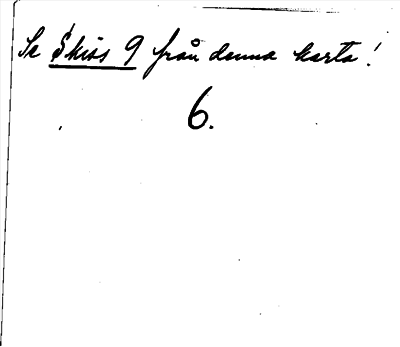 Se Skiss 9 från denna karta!
6.